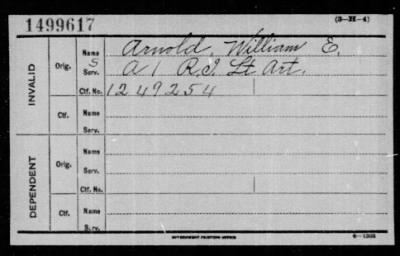 1499617 (3-H-4)
INVALID
Orig.
Name Arnold, William E.
S
Serv. A 1 R.I. Lt Art.
Ctf. No. 1249254
Ctf.
Name
Serv.
DEPENDENT
Orig.
Name
Serv.
Ctf. No.
Ctf.
Name
Serv.
GOVERNMENT PRINTING OFFICE